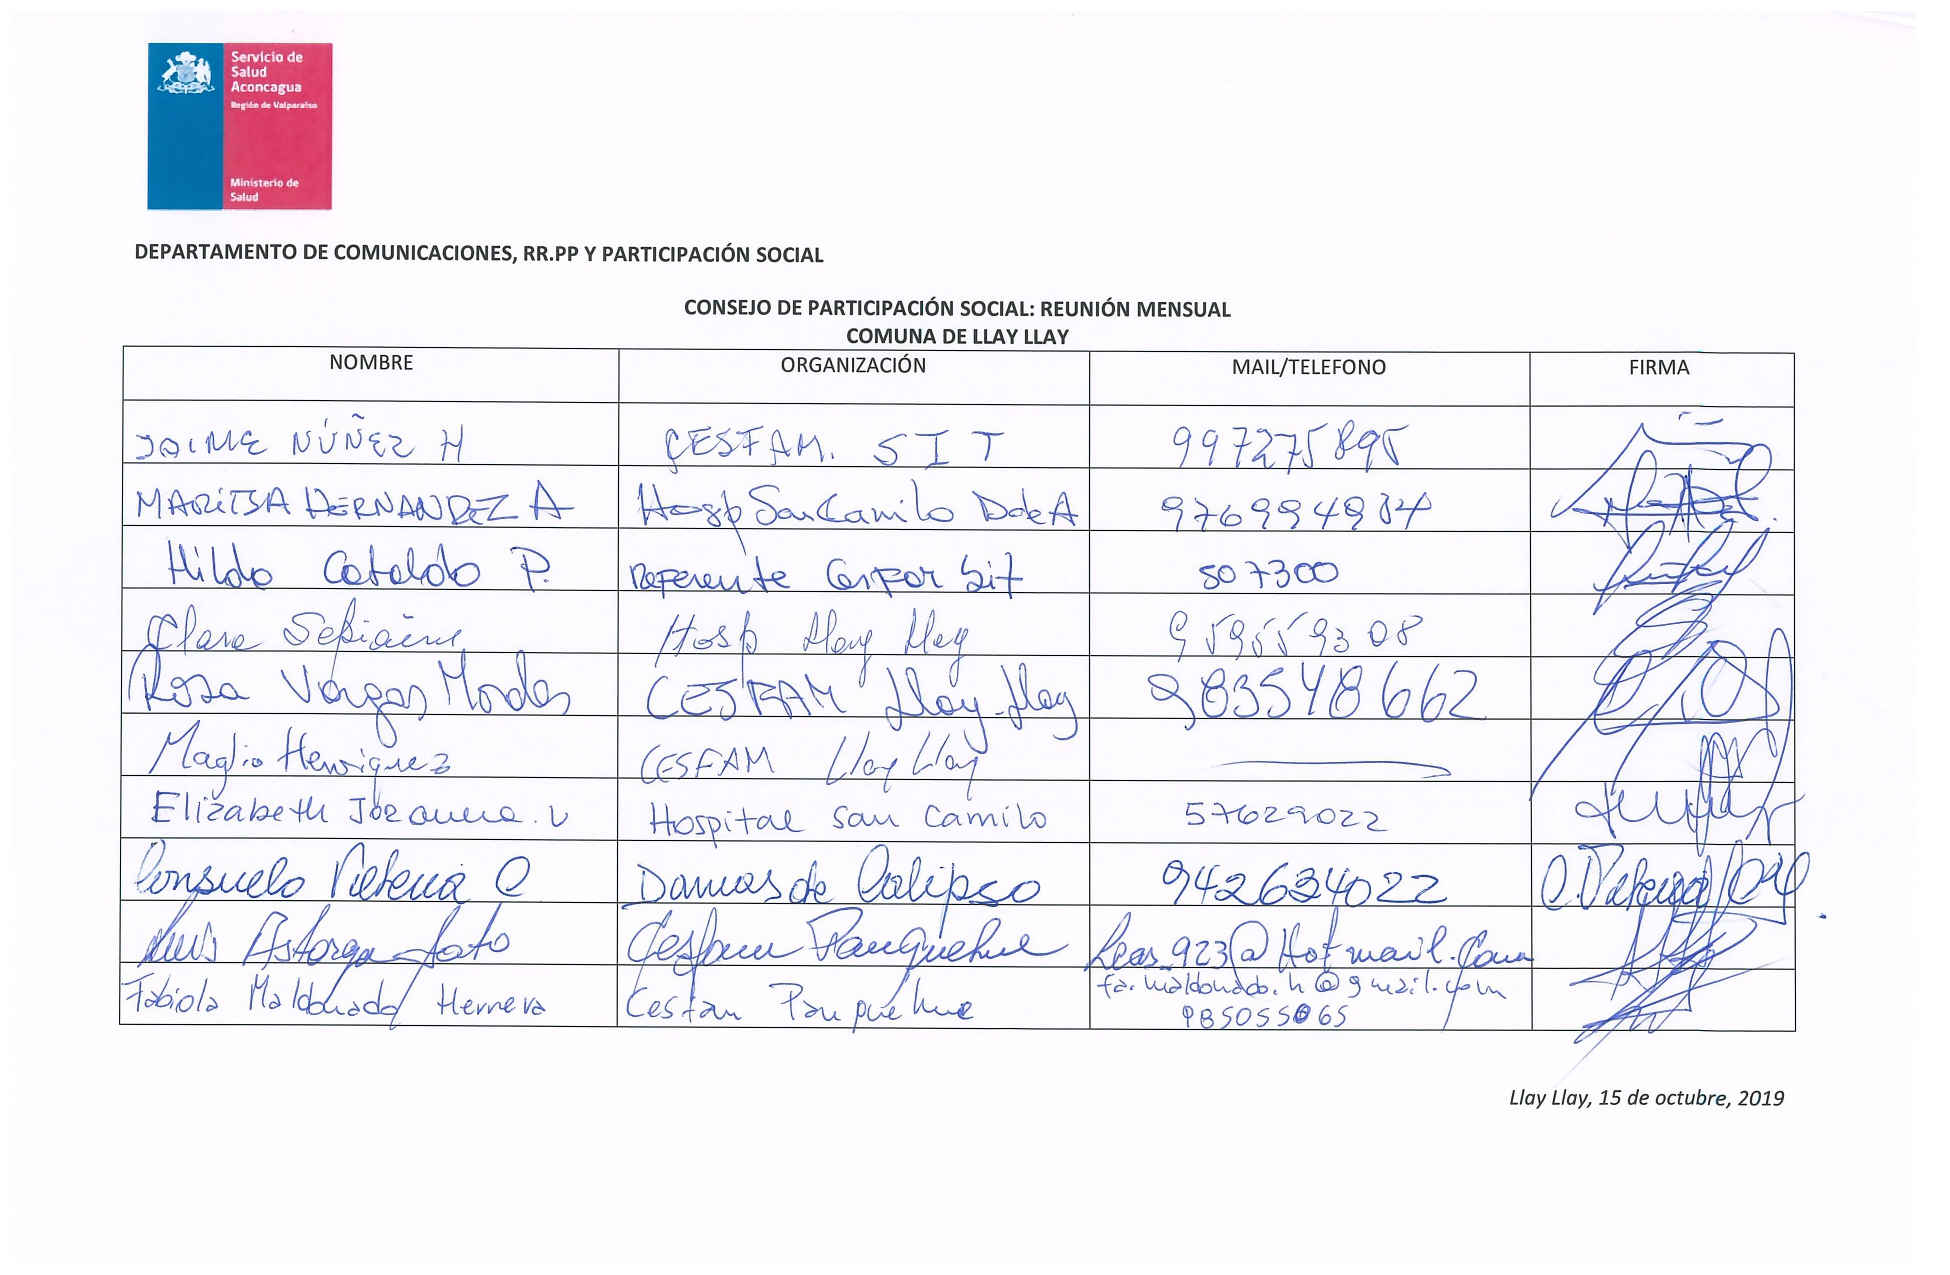 Servicio de
Salud
Aconcagua
Región de Valparaíso
Ministerio de
Salud
DEPARTAMENTO DE COMUNICACIONES, RR.PP Y PARTICIPACIÓN SOCIAL
CONSEJO DE PARTICIPACIÓN SOCIAL: REUNIÓN MENSUAL
COMUNA DE LLAY LLAY
NOMBRE ORGANIZACIÓN MAIL/TELEFONO FIRMA
JAIME NÚÑEZ H CESFAM. SIT 997275895
MARITSA HERNANDEZ A Hosp San Camilo D de A 976994984
Hilda Cataldo P. Referente Sit 507300
Clara Hosp Llay Llay 959559308
Rosa Vargas CESFAM Llay-Llay 983548662
Maglio Henriquez CESFAM Llay Llay
Elizabeth Hospital San Camilo 57629022
Consuelo C Damas de Calipso 942634022
Luis Astorga Cesfam Panquehue @Hotmail.Com
Fabiola Maldonado Herrera Cesfam Panquehue fa.maldonado.h@gmail.com
985055065
Llay Llay, 15 de octubre, 2019